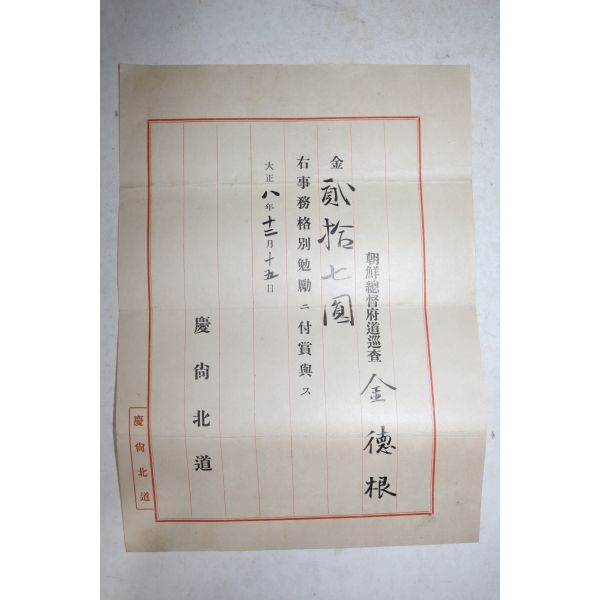 朝鮮總督府道巡查 金德根
金貳拾七圓
右事務格別勉勵ニ付賞與ス
大正八年十二月十五日
慶尙北道
慶尙北道